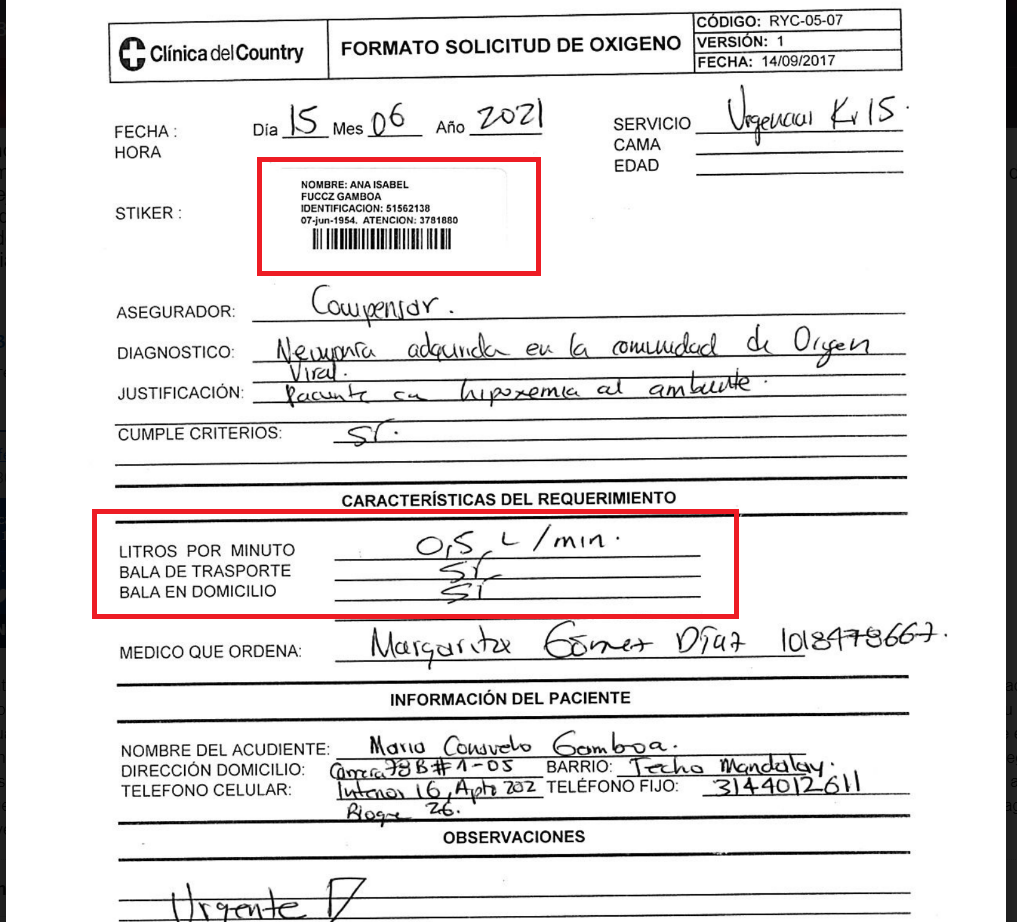 Clínica del Country
FORMATO SOLICITUD DE OXIGENO
CÓDIGO: RYC-05-07
VERSIÓN: 1
FECHA: 14/09/2017
FECHA : Día 15 Mes 06 Año 2021
SERVICIO Urgencias Kr 15.
HORA
CAMA
EDAD
STIKER :
NOMBRE: ANA ISABEL
FUCCZ GAMBOA
IDENTIFICACION: 51562138
07-jun-1954. ATENCION: 3781880
ASEGURADOR: Compensar.
DIAGNOSTICO: Neumonía adquirida en la comunidad de Origen
Viral.
JUSTIFICACIÓN: Paciente con hipoxemia al ambiente.
CUMPLE CRITERIOS: Sí.
CARACTERÍSTICAS DEL REQUERIMIENTO
LITROS POR MINUTO 0,5 L/min.
BALA DE TRASPORTE Sí
BALA EN DOMICILIO Sí
MEDICO QUE ORDENA: Margarita Gómez Díaz 1018478667.
INFORMACIÓN DEL PACIENTE
NOMBRE DEL ACUDIENTE: Maria Consuelo Gamboa.
DIRECCIÓN DOMICILIO: Carrera 78B # 1-05 BARRIO: Techo Mandalay.
TELEFONO CELULAR: Interior 16, Apto 202 TELÉFONO FIJO: 3144012611
26.
OBSERVACIONES
Urgente